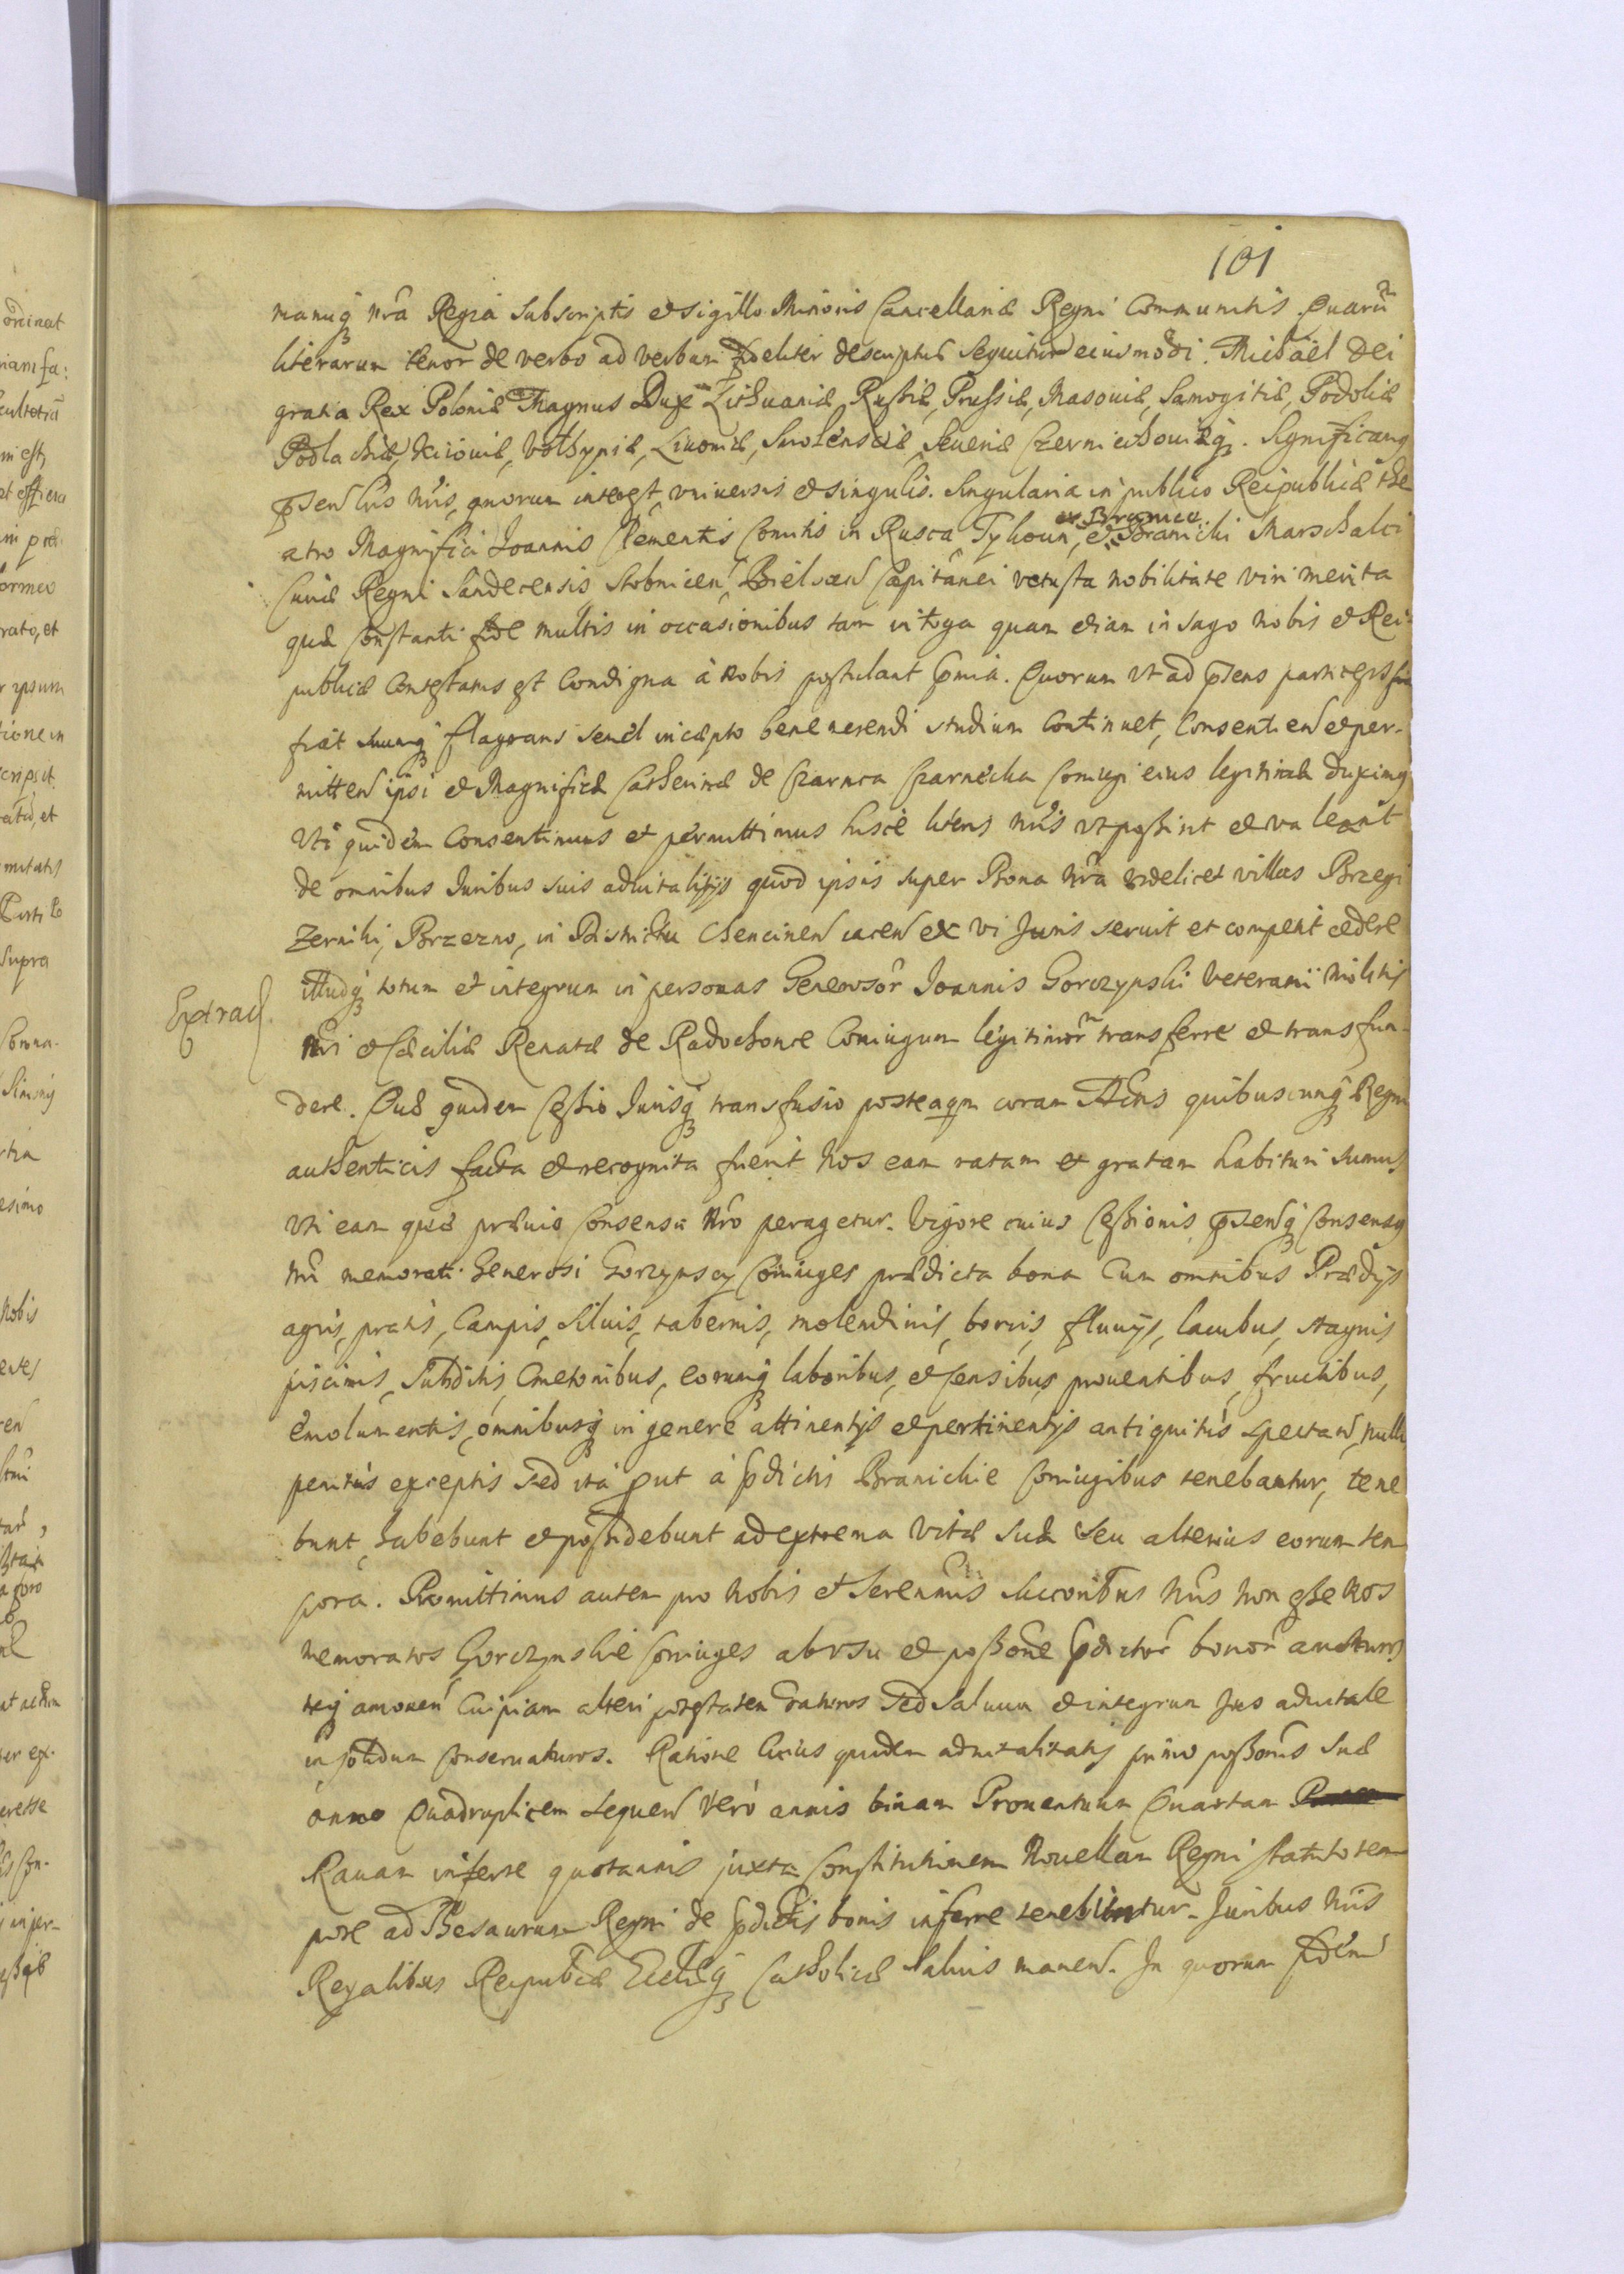 101
manuq̃ nrã Regia subscriptis et sigillo Minoris Cancellariæ Regni Communitis. Quarũ
literarum tenor de verbo ad verbum fideliter descriptus sequitur eiusmodi. Michaël Dei
gratia Rex Poloniæ Magnus Dux Lithuaniæ, Russiæ, Prussiæ, Masouiæ, Samogitiæ, Podoliæ
Podlachiæ, Kiiouiæ, Volhyniæ, Liuoniæ, Smolensciæ, Seueriæ Czerniechouiæq̃. Significamus
pñtibus lris nris, quorum interest, vniuersis et singulis. Singularia in publico Reipublicæ the
atro Magnifici Joannis Clementis Comitis in Rusca Tykocin, et ex Branice Branicki Marschalci
Curiæ Regni Sandecensis Stobnicen Bielscen Capitanei vetusta nobilitate viri merita
quæ constanti fide multis in occasionibus tam in toga quam etiam in sago nobis et Rei-
publicæ contestatus est condigna à Nobis postulant præmia. Quorum vt ad præsens particeps
fiat suumq̃ flagrans semel incæpto bene merendi studium continuet, Consentien et per-
mitten ipsi et Magnificæ Catherinæ de Czarnca Czarnecka Coniugi eius legitimæ duximus
vti quidem Consentimus et permittimus hisce literis nris vt possint et valeant
de omnibus Iuribus suis aduitalitijs quod ipsis super Bona nrã videlicet villas Brzegi
Zerniki, Brzezno, in Districtu Chencinen iacen ex vi Juris seruit et competit cedere
Extract.
illudq̃ totum et integrum in personas Generosor Joannis Gorczynski veterani Militis
nri et Cæciliæ Renatæ de Radochonce Coniugum legitimor transferre et transfun-
dere. Quæ quidem Cessio Jurisq̃ transfusio posteaqm coram Actis quibuscunq̃ Regni
authenticis facta et recognita fuerit Nos eam ratam et gratam habituri sumus
vti eam quæ præuio Consensu nro peragetur. Vigore cuius Cessionis, præsenq̃ Consensus
nri memorati Generosi Gorczynscy Coniuges prædicta bona Cum omnibus Prædijs
agris, pratis, Campis, Siluis, tabernis, molendinis, borris, fluuijs, lacubus, stagnis
piscinis, Subditis, Cmetonibus, eorumq̃ laboribus, et censibus prouentibus, fructibus,
emolumentis, omnibusq̃ in genere attinentijs et pertinentijs antiquitus spectan, nullis
penitus exceptis sed ita put à prædictis Branickie Coniugibus tenebantur, tene
bunt, habebunt et possidebunt ad extrema vitæ suæ seu alterius eorum tem
pora. Promittimus autem pro Nobis et Serenmis Successoribus nris non esse nos
memoratos Gorczynskie Coniuges ab vsu et possone prædictor bonor amoturos
neq̃ amouen cuipiam alteri potestatem daturos sed saluum et integrum Jus aduitale
in solidum conseruaturos. Ratione cuius quidem aduitalitatis primo possonis suæ
anno Quadruplicem sequen verò annis binam Prouentuum Quartam
Rauam inferre quotannis juxta Constitutionem Nouellam Regni statuto tem
pore ad Thesaurum Regni de prædictis bonis inferre tenebuntur. Juribus nris
Regalibus Reipublicæ Ecclæq̃ Catholicæ Saluis manen. In quorum fidem